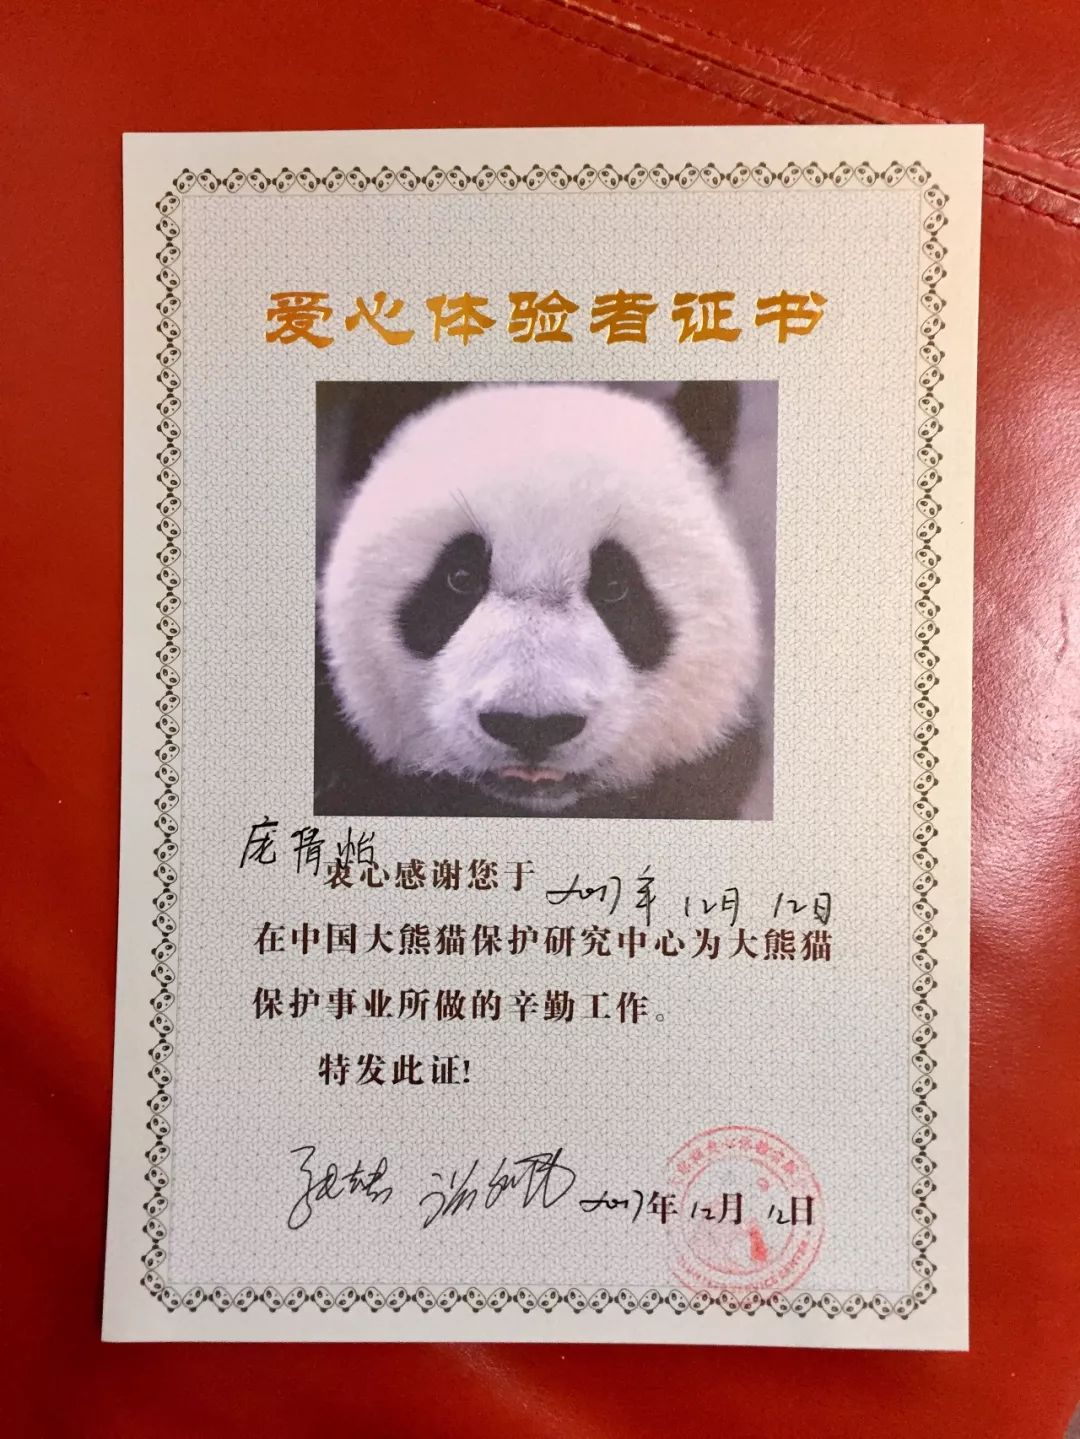 爱心体验者证书
庞倩怡
衷心感谢您于 2017年 12月 12日
在中国大熊猫保护研究中心为大熊猫
保护事业所做的辛勤工作。
特发此证!
2017年 12月 12日